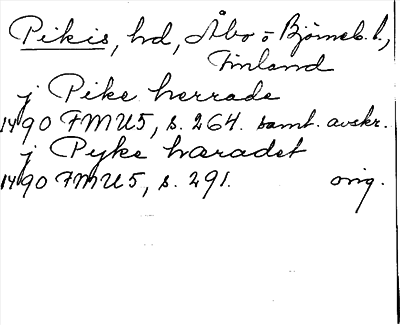 Pikis, hd, Åbo o Björneb. l.,
Finland
j Pike herrade
1490 FMU5, s. 264. samt. avskr.
j Pyke hæradet
1490 FMU5, s. 291. orig.